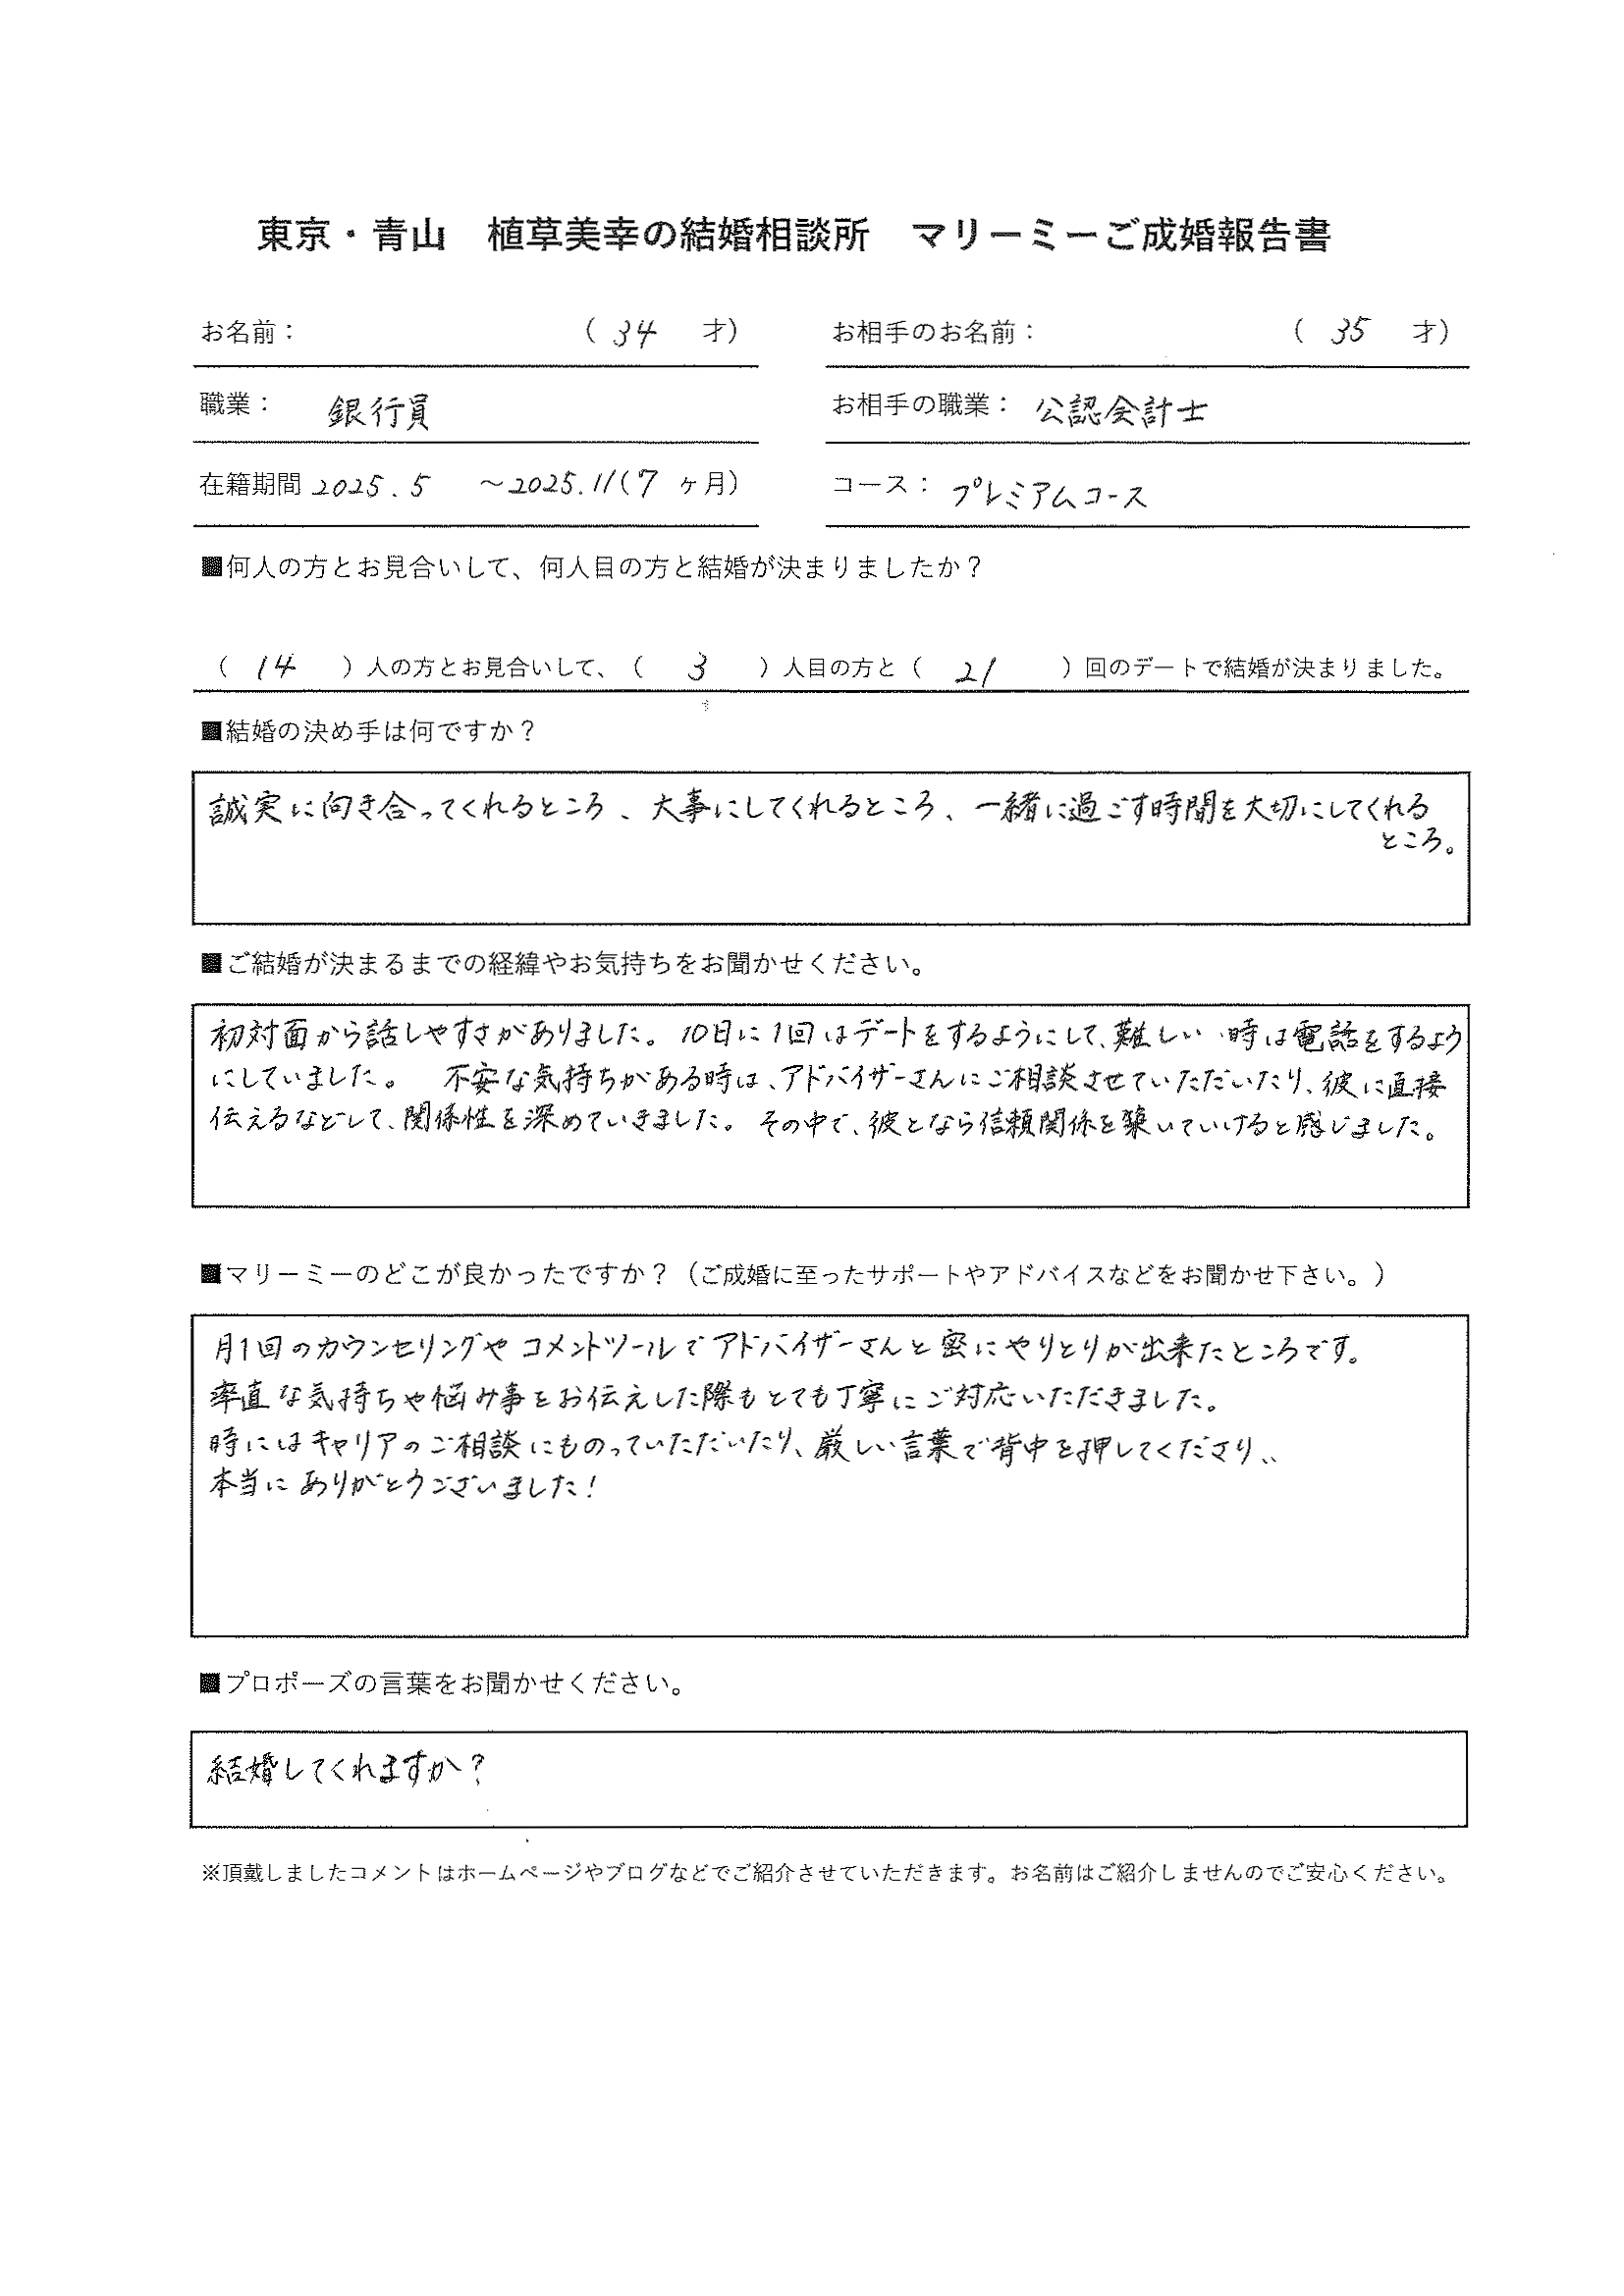 東京・青山　植草美幸の結婚相談所　マリーミーご成婚報告書
お名前：　（ 34 才）　お相手のお名前：　（ 35 才）
職業：　銀行員　お相手の職業：　公認会計士
在籍期間 2025.5 ～2025.11（7 ヶ月）　コース：　プレミアムコース
■何人の方とお見合いして、何人目の方と結婚が決まりましたか？
（ 14 ）人の方とお見合いして、（ 3 ）人目の方と（ 21 ）回のデートで結婚が決まりました。
■結婚の決め手は何ですか？
誠実に向き合ってくれるところ、大事にしてくれるところ、一緒に過ごす時間を大切にしてくれる
ところ。
■ご結婚が決まるまでの経緯やお気持ちをお聞かせください。
初対面から話しやすさがありました。10日に1回はデートをするようにして、難しい時は電話をするよう
にしていました。　不安な気持ちがある時は、アドバイザーさんにご相談させていただいたり、彼に直接
伝えるなどして、関係性を深めていきました。その中で、彼となら信頼関係を築いていけると感じました。
■マリーミーのどこが良かったですか？（ご成婚に至ったサポートやアドバイスなどをお聞かせ下さい。）
月1回のカウンセリングやコメントツールでアドバイザーさんと密にやりとりが出来たところです。
率直な気持ちや悩み事をお伝えした際もとても丁寧にご対応いただきました。
時にはキャリアのご相談にものっていただいたり、厳しい言葉で背中を押してくださり、、
本当にありがとうございました！
■プロポーズの言葉をお聞かせください。
結婚してくれますか？
※頂戴しましたコメントはホームページやブログなどでご紹介させていただきます。お名前はご紹介しませんのでご安心ください。